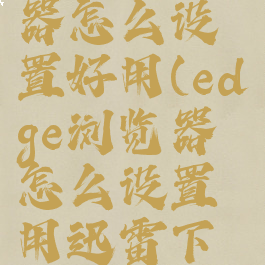 器怎么设
置好用(ed
ge浏览器
怎么设置
用迅雷下